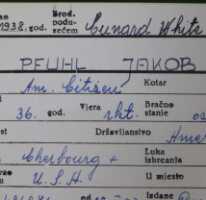 1938. god. Brod. podu- zećem Cunard White
PFUHL JAKOB
Am. Citizen Kotar
36. god. Vjera rkt. Bračno stanje
Državljanstvo Amer
Cherbourg + Luka iskrcanja
U.S.A. U mjesto
Izdane